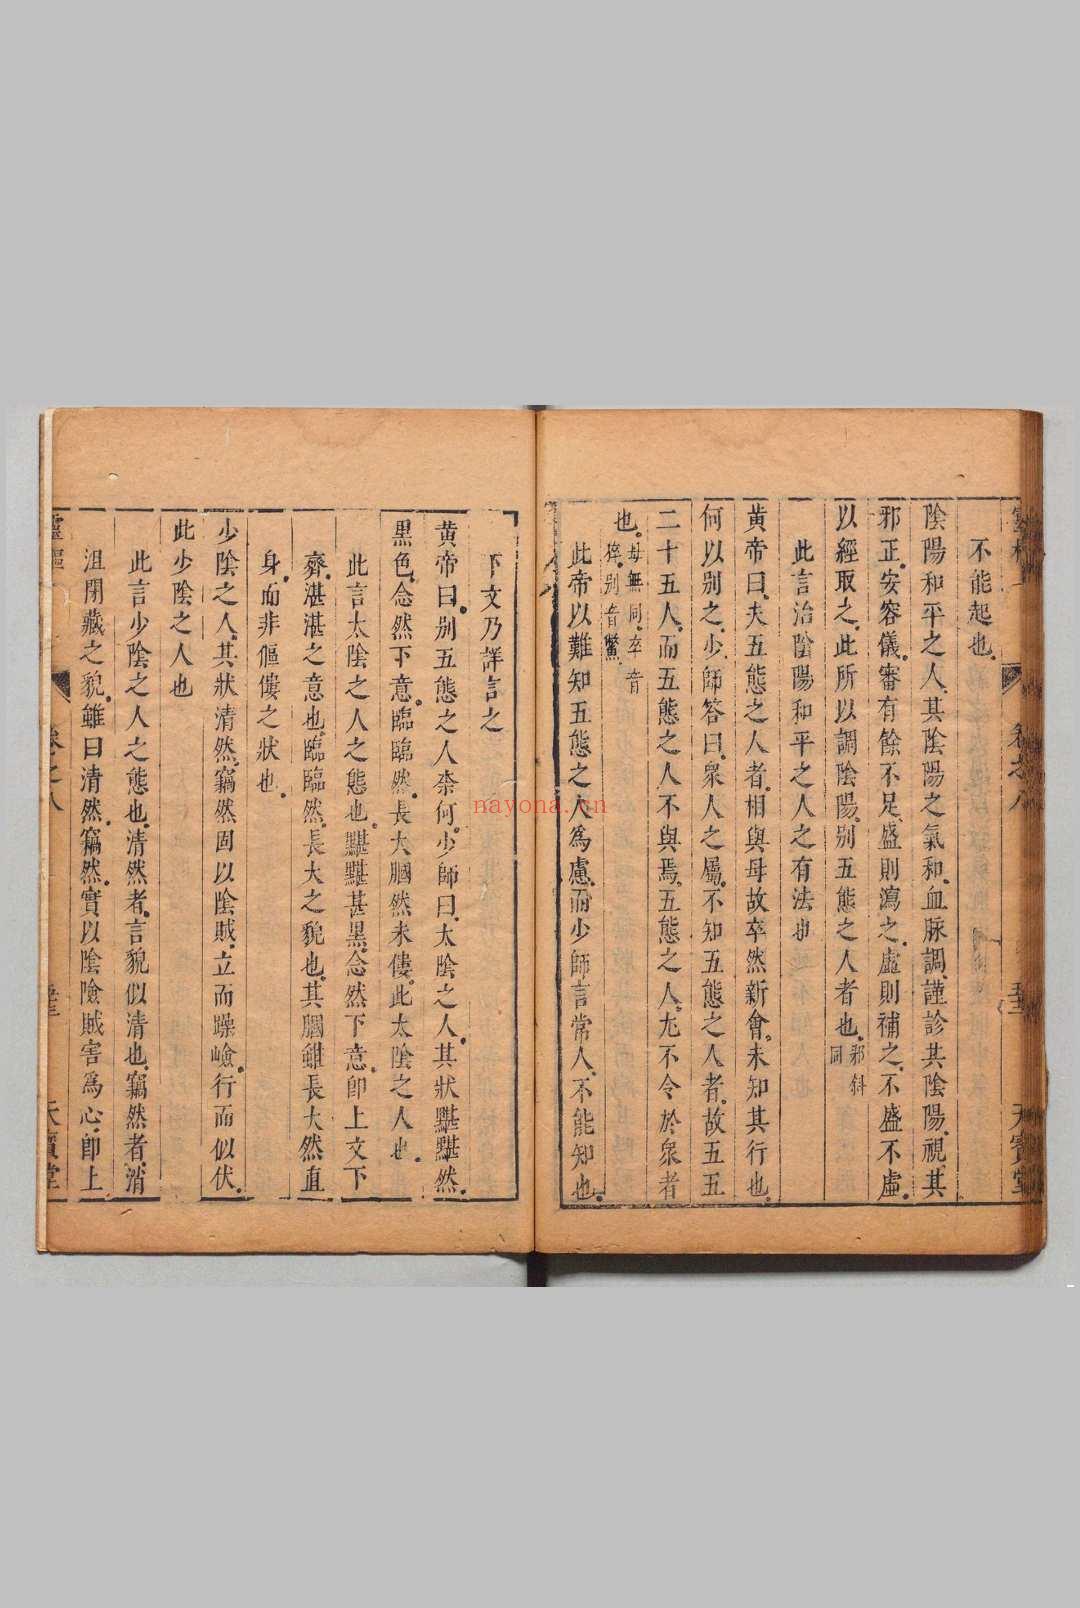 不能起也
陰陽和平之人其陰陽之氣和血脉調謹診其陰陽視其
邪正安容儀審有餘不足盛則瀉之虛則補之不盛不虛
以經取之此所以調陰陽别五態之人者也邪斜同
此言治陰陽和平之人之有法也
黄帝曰夫五態之人者相與毋故卒然新會未知其行也
何以别之少師答曰衆人之屬不知五態之人者故五五
二十五人而五態之人不與焉五態之人尤不合於衆者
也毋無同卒音猝别音鱉
此帝以難知五態之人爲慮而少師言常人不能知也
天寶堂
下文乃詳言之
黄帝曰别五態之人柰何少師曰太陰之人其狀黮黮然
黑色念然下意臨臨然長大膕然未僂此太陰之人也
此言太陰之人之態也黮黮甚黑念然下意卽上文下
齊湛湛之意也臨臨然長大之貌也其膕雖長大然直
身而非傴僂之狀也
少陰之人其狀清然竊然固以陰賊立而躁嶮行而似伏
此少陰之人也
此言少陰之人之態也清然者言貌似清也竊然者消
沮閉藏之貌雖曰清然竊然實以陰險賊害爲心卽上
靈樞
卷之八
天寶堂
nayona.cn